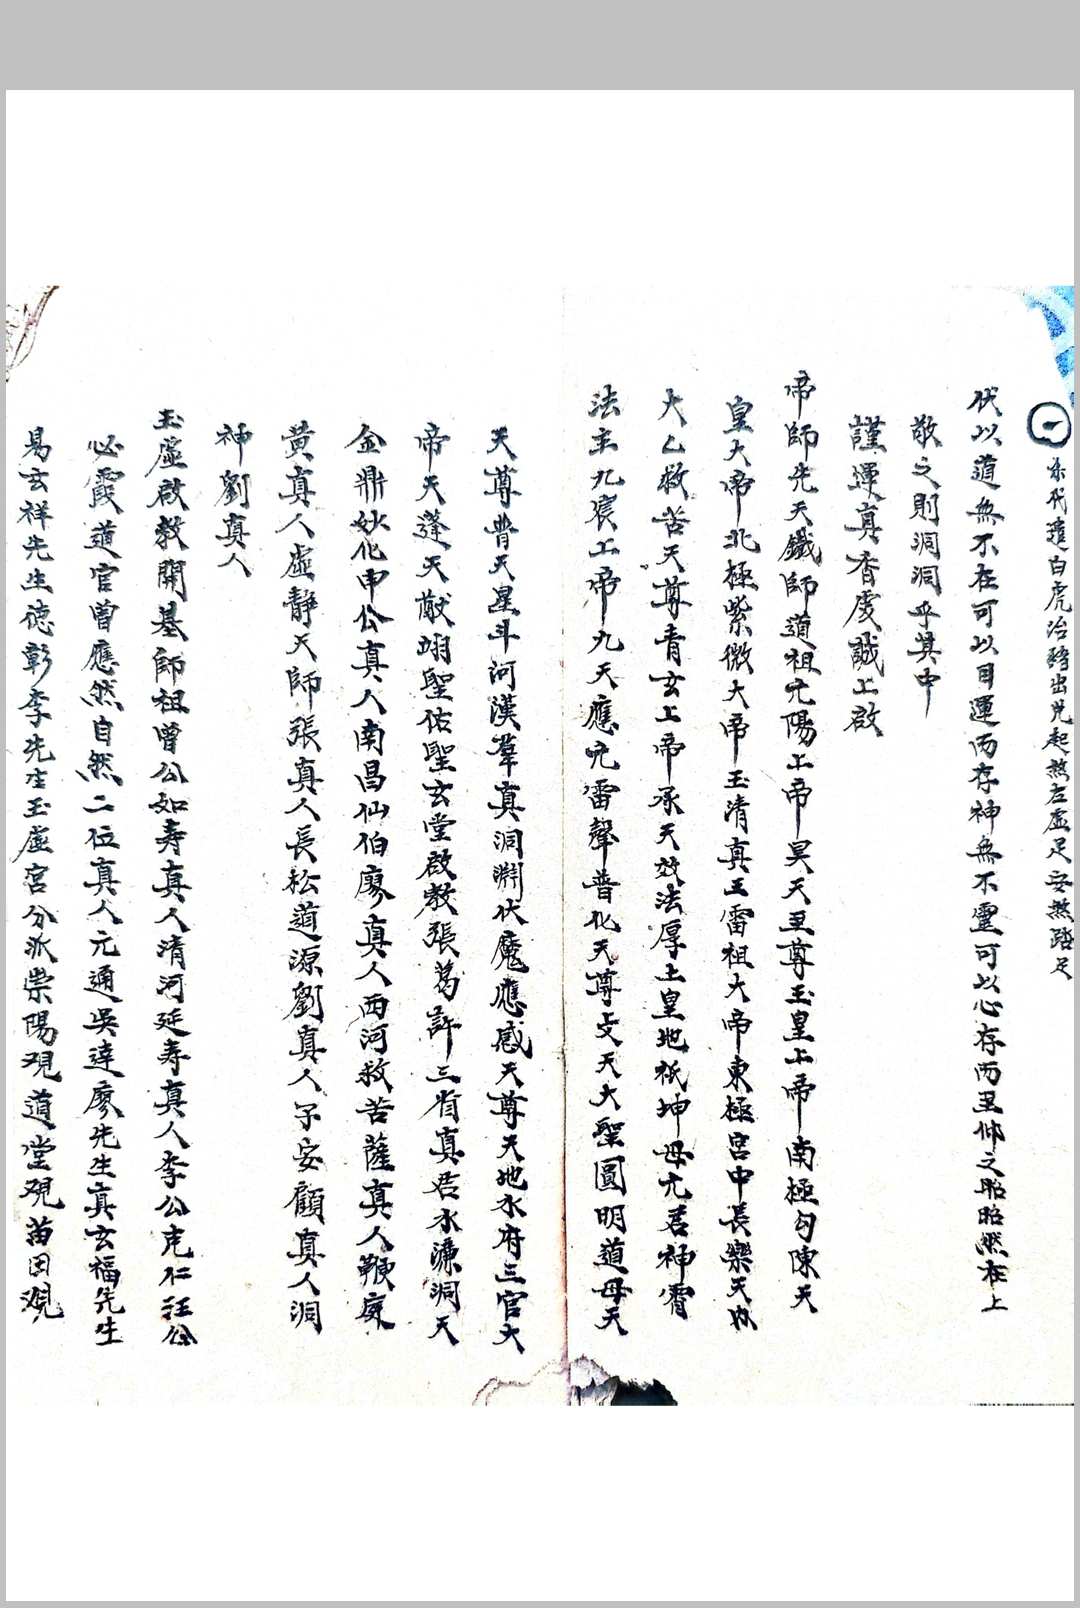 ㊀ 代遣白虎治 出 起煞左虛足安煞踏足
伏以道無不在可以目運而存神無不靈可以心存而至仰之昭昭然在上
敬之則洞洞乎其中
謹運真香虔誠上啟
帝師先天鐵師道祖元陽上帝昊天至尊玉皇上帝南極勾陳天
皇大帝北極紫微大帝玉清真王雷祖大帝東極宮中長樂天
大乙救苦天尊青玄上帝承天效法厚土皇地祇坤母元君神霄
法主九宸上帝九天應元雷聲普化天尊 天大聖圓明道母天
天尊普天星斗河漢羣真洞淵伏魔應感天尊天地水府三官大
帝天蓬天猷翊聖佑聖玄堂啟教張葛許三省真君水濂洞天
金鼎妙化申公真人南昌仙伯廖真人西河救苦薩真人鞭
黄真人虛靜天師張真人長松道源劉真人子安顧真人洞
神劉真人
玉虛啟教開基師祖曾公如寿真人清河延寿真人李公克仁汪公
必霞道官曾應然自然二位真人元通吳達廖先生真玄福先生
易玄祥先生德彰李先生玉虛宮分派崇陽观道堂观苗田观